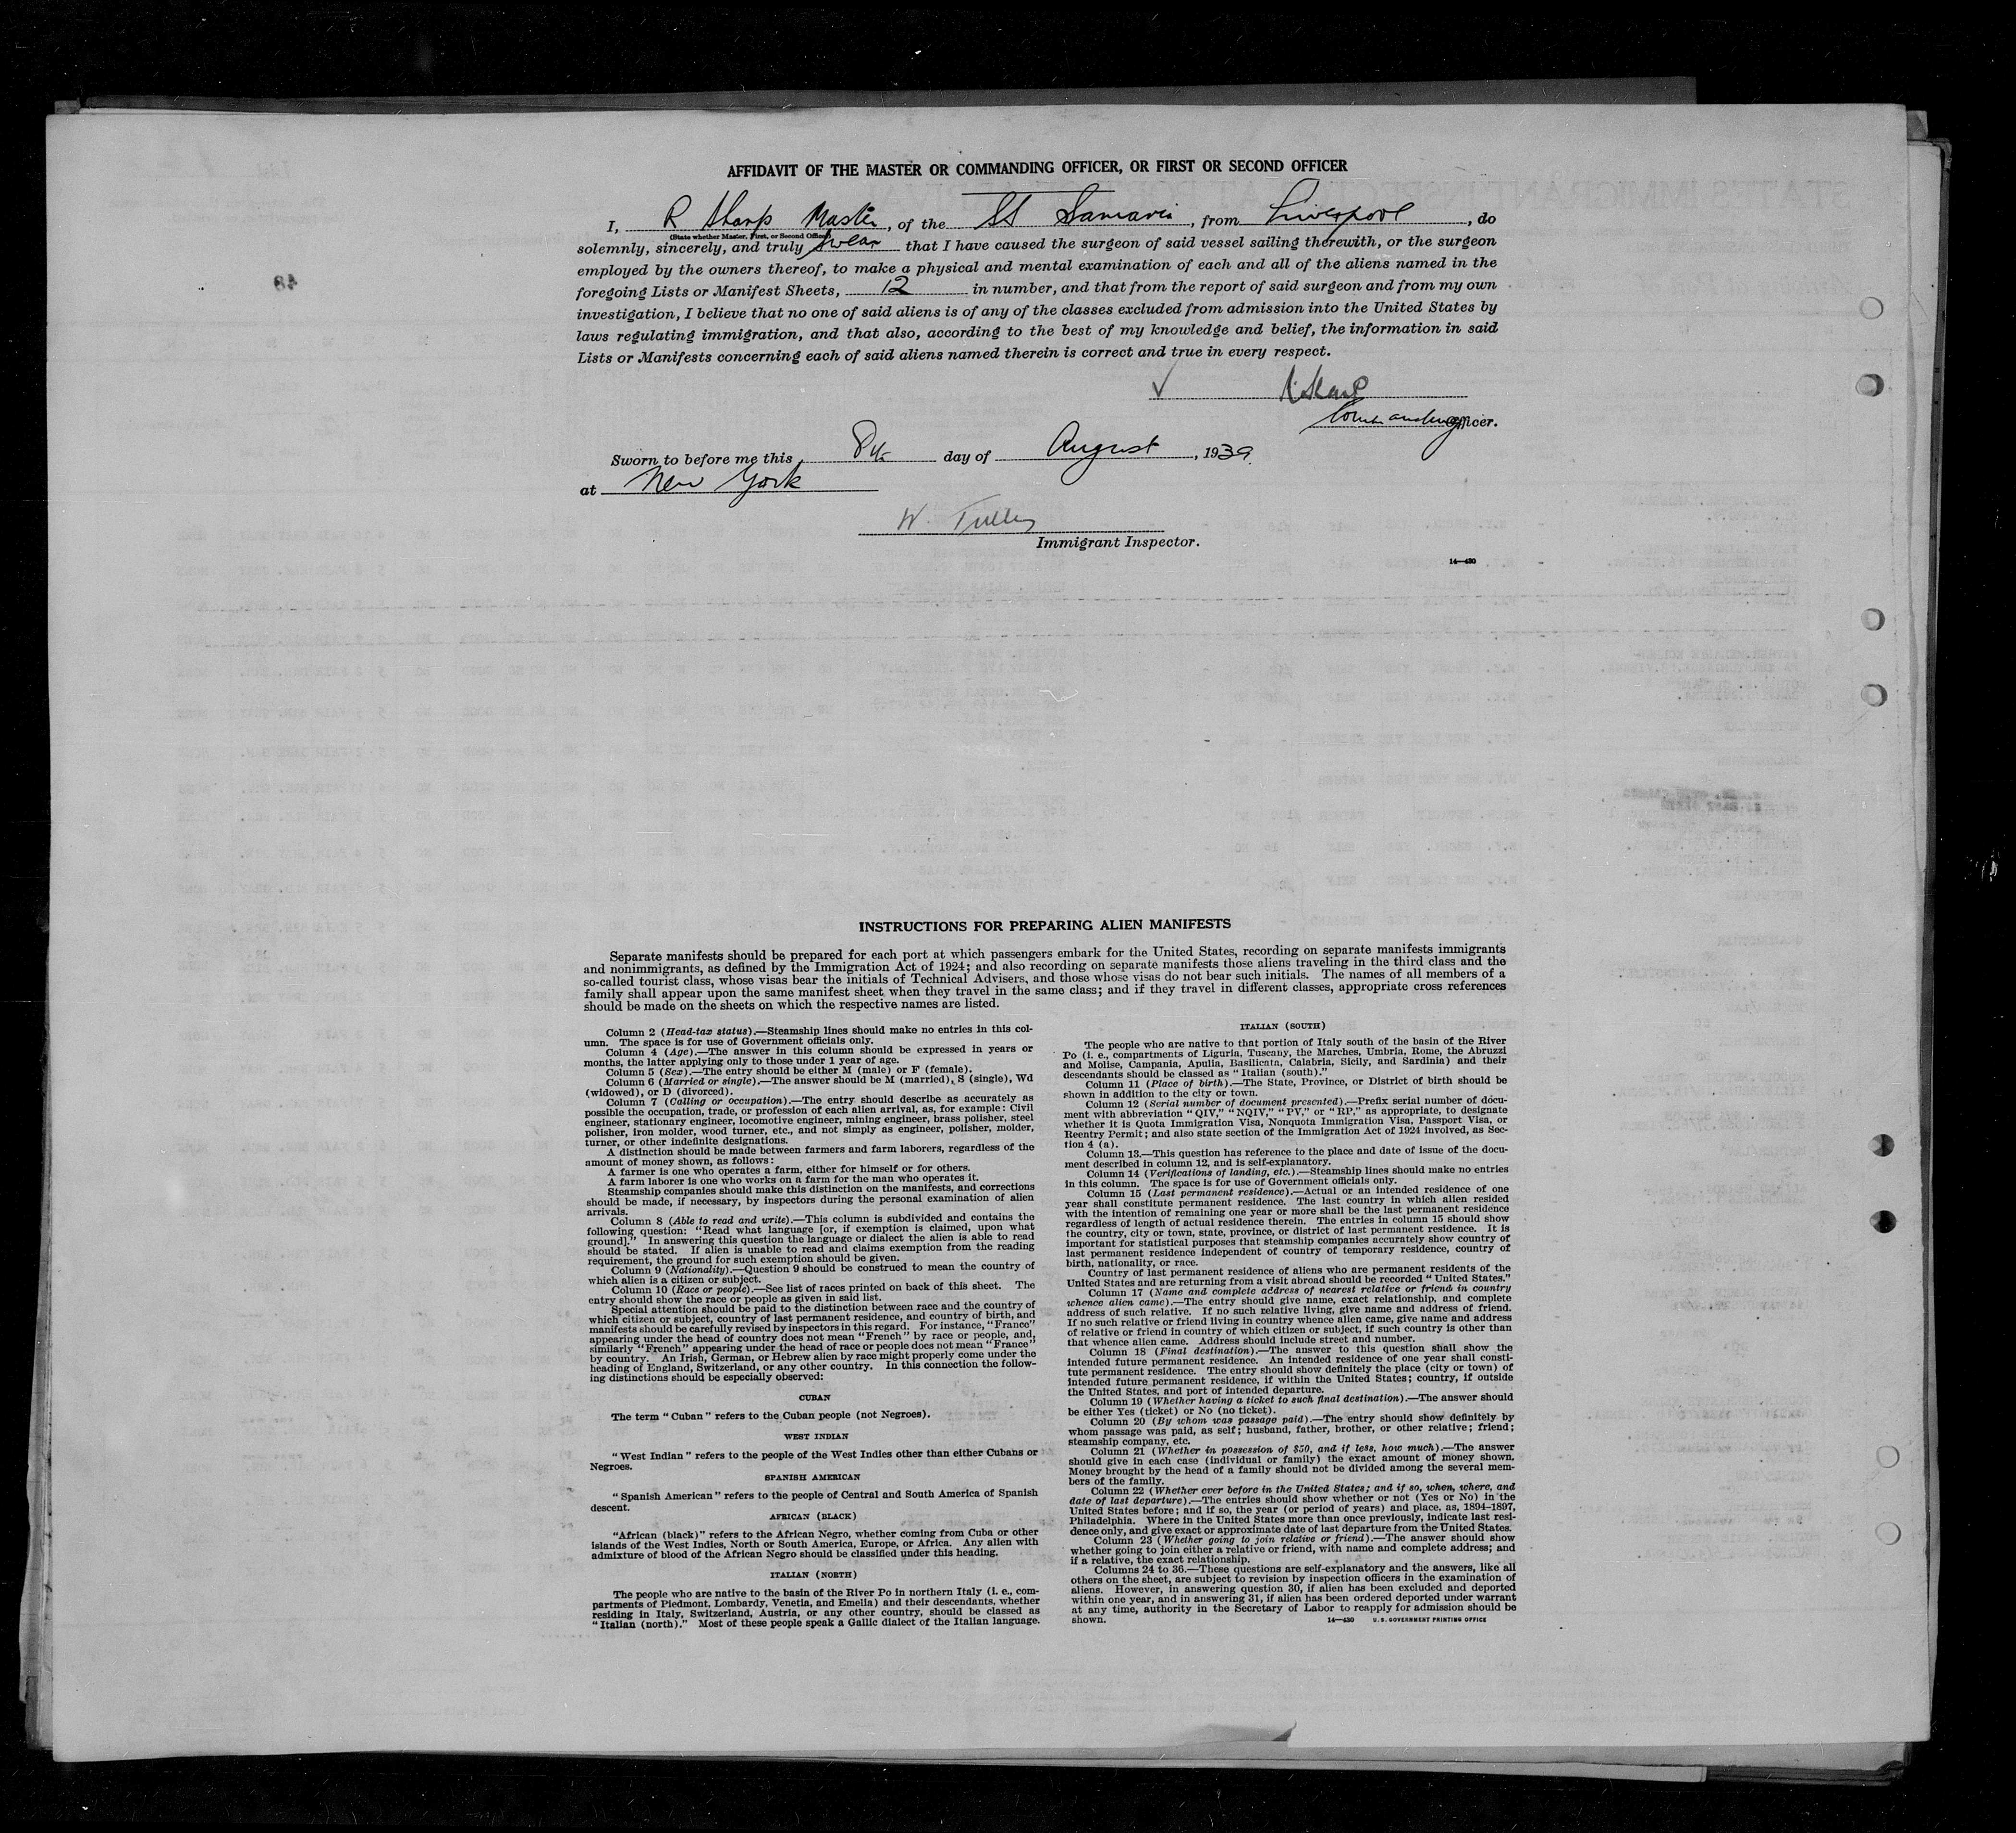 AFFIDAVIT OF THE MASTER OR COMMANDING OFFICER, OR FIRST OR SECOND OFFICER
I, R Sharp Master, of the SS Samaria, from Liverpool, do
(State whether Master, First, or Second Officer)
solemnly, sincerely, and truly swear that I have caused the surgeon of said vessel sailing therewith, or the surgeon
employed by the owners thereof, to make a physical and mental examination of each and all of the aliens named in the
foregoing Lists or Manifest Sheets, 12 in number, and that from the report of said surgeon and from my own
investigation, I believe that no one of said aliens is of any of the classes excluded from admission into the United States by
laws regulating immigration, and that also, according to the best of my knowledge and belief, the information in said
Lists or Manifests concerning each of said aliens named therein is correct and true in every respect.
R Sharp
Commanding Officer.
Sworn to before me this 8th day of August, 1939
at New York
W. Tulley
Immigrant Inspector.
14—430
48
INSTRUCTIONS FOR PREPARING ALIEN MANIFESTS
Separate manifests should be prepared for each port at which passengers embark for the United States, recording on separate manifests immigrants
and nonimmigrants, as defined by the Immigration Act of 1924; and also recording on separate manifests those aliens traveling in the third class and the
so-called tourist class, whose visas bear the initials of Technical Advisers, and those whose visas do not bear such initials. The names of all members of a
family shall appear upon the same manifest sheet when they travel in the same class; and if they travel in different classes, appropriate cross references
should be made on the sheets on which the respective names are listed.
Column 2 (Head-tax status).—Steamship lines should make no entries in this col-
umn. The space is for use of Government officials only.
Column 4 (Age).—The answer in this column should be expressed in years or
months, the latter applying only to those under 1 year of age.
Column 5 (Sex).—The entry should be either M (male) or F (female).
Column 6 (Married or single).—The answer should be M (married), S (single), Wd
(widowed), or D (divorced).
Column 7 (Calling or occupation).—The entry should describe as accurately as
possible the occupation, trade, or profession of each alien arrival, as, for example: Civil
engineer, stationary engineer, locomotive engineer, mining engineer, brass polisher, steel
polisher, iron molder, wood turner, etc., and not simply as engineer, polisher, molder,
turner, or other indefinite designations.
A distinction should be made between farmers and farm laborers, regardless of the
amount of money shown, as follows:
A farmer is one who operates a farm, either for himself or for others.
A farm laborer is one who works on a farm for the man who operates it.
Steamship companies should make this distinction on the manifests, and corrections
should be made, if necessary, by inspectors during the personal examination of alien
arrivals.
Column 8 (Able to read and write).—This column is subdivided and contains the
following question: “Read what language [or, if exemption is claimed, upon what
ground].” In answering this question the language or dialect the alien is able to read
should be stated. If alien is unable to read and claims exemption from the reading
requirement, the ground for such exemption should be given.
Column 9 (Nationality).—Question 9 should be construed to mean the country of
which alien is a citizen or subject.
Column 10 (Race or people).—See list of races printed on back of this sheet. The
entry should show the race or people as given in said list.
Special attention should be paid to the distinction between race and the country of
which citizen or subject, country of last permanent residence, and country of birth, and
manifests should be carefully revised by inspectors in this regard. For instance, “France”
appearing under the head of country does not mean “French” by race or people, and,
similarly “French” appearing under the head of race or people does not mean “France”
by country. An Irish, German, or Hebrew alien by race might properly come under the
heading of England, Switzerland, or any other country. In this connection the follow-
ing distinctions should be especially observed:
CUBAN
The term “Cuban” refers to the Cuban people (not Negroes).
WEST INDIAN
“West Indian” refers to the people of the West Indies other than either Cubans or
Negroes.
SPANISH AMERICAN
“Spanish American” refers to the people of Central and South America of Spanish
descent.
AFRICAN (BLACK)
“African (black)” refers to the African Negro, whether coming from Cuba or other
islands of the West Indies, North or South America, Europe, or Africa. Any alien with
admixture of blood of the African Negro should be classified under this heading.
ITALIAN (NORTH)
The people who are native to the basin of the River Po in northern Italy (i. e., com-
partments of Piedmont, Lombardy, Venetia, and Emelia) and their descendants, whether
residing in Italy, Switzerland, Austria, or any other country, should be classed as
“Italian (north).” Most of these people speak a Gallic dialect of the Italian language.
ITALIAN (SOUTH)
The people who are native to that portion of Italy south of the basin of the River
Po (i. e., compartments of Liguria, Tuscany, the Marches, Umbria, Rome, the Abruzzi
and Molise, Campania, Apulia, Basilicata, Calabria, Sicily, and Sardinia) and their
descendants should be classed as “Italian (south).”
Column 11 (Place of birth).—The State, Province, or District of birth should be
shown in addition to the city or town.
Column 12 (Serial number of document presented).—Prefix serial number of docu-
ment with abbreviation “QIV,” “NQIV,” “PV,” or “RP,” as appropriate, to designate
whether it is Quota Immigration Visa, Nonquota Immigration Visa, Passport Visa, or
Reentry Permit; and also state section of the Immigration Act of 1924 involved, as Sec-
tion 4 (a).
Column 13.—This question has reference to the place and date of issue of the docu-
ment described in column 12, and is self-explanatory.
Column 14 (Verifications of landing, etc.).—Steamship lines should make no entries
in this column. The space is for use of Government officials only.
Column 15 (Last permanent residence).—Actual or an intended residence of one
year shall constitute permanent residence. The last country in which alien resided
with the intention of remaining one year or more shall be the last permanent residence
regardless of length of actual residence therein. The entries in column 15 should show
the country, city or town, state, province, or district of last permanent residence. It is
important for statistical purposes that steamship companies accurately show country of
last permanent residence independent of country of temporary residence, country of
birth, nationality, or race.
Country of last permanent residence of aliens who are permanent residents of the
United States and are returning from a visit abroad should be recorded “United States.”
Column 17 (Name and complete address of nearest relative or friend in country
whence alien came).—The entry should give name, exact relationship, and complete
address of such relative. If no such relative living, give name and address of friend.
If no such relative or friend living in country whence alien came, give name and address
of relative or friend in country of which citizen or subject, if such country is other than
that whence alien came. Address should include street and number.
Column 18 (Final destination).—The answer to this question shall show the
intended future permanent residence. An intended residence of one year shall consti-
tute permanent residence. The entry should show definitely the place (city or town) of
intended future permanent residence, if within the United States; country, if outside
the United States, and port of intended departure.
Column 19 (Whether having a ticket to such final destination).—The answer should
be either Yes (ticket) or No (no ticket).
Column 20 (By whom was passage paid).—The entry should show definitely by
whom passage was paid, as self; husband, father, brother, or other relative; friend;
steamship company, etc.
Column 21 (Whether in possession of $50, and if less, how much).—The answer
should give in each case (individual or family) the exact amount of money shown.
Money brought by the head of a family should not be divided among the several mem-
bers of the family.
Column 22 (Whether ever before in the United States; and if so, when, where, and
date of last departure).—The entries should show whether or not (Yes or No) in the
United States before; and if so, the year (or period of years) and place, as, 1894–1897,
Philadelphia. Where in the United States more than once previously, indicate last resi-
dence only, and give exact or approximate date of last departure from the United States.
Column 23 (Whether going to join relative or friend).—The answer should show
whether going to join either a relative or friend, with name and complete address; and
if a relative, the exact relationship.
Columns 24 to 36.—These questions are self-explanatory and the answers, like all
others on the sheet, are subject to revision by inspection officers in the examination of
aliens. However, in answering question 30, if alien has been excluded and deported
within one year, and in answering 31, if alien has been ordered deported under warrant
at any time, authority in the Secretary of Labor to reapply for admission should be
shown.
14—430 U. S. GOVERNMENT PRINTING OFFICE